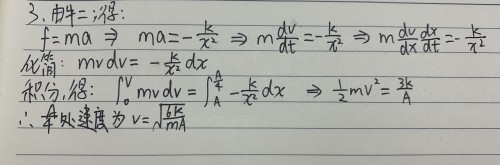 3. 由牛二得:
f=ma ⇒ ma=-k/x² ⇒ m dv/dt=-k/x² ⇒ m dv/dx dx/dt=-k/x²
化简: mvdv = -k/x² dx
积分,得: ∫₀^V mvdv = ∫_A^(A/4) -k/x² dx ⇒ 1/2 mv²=3k/A
∴ A/4处速度为 v=√(6k/mA)